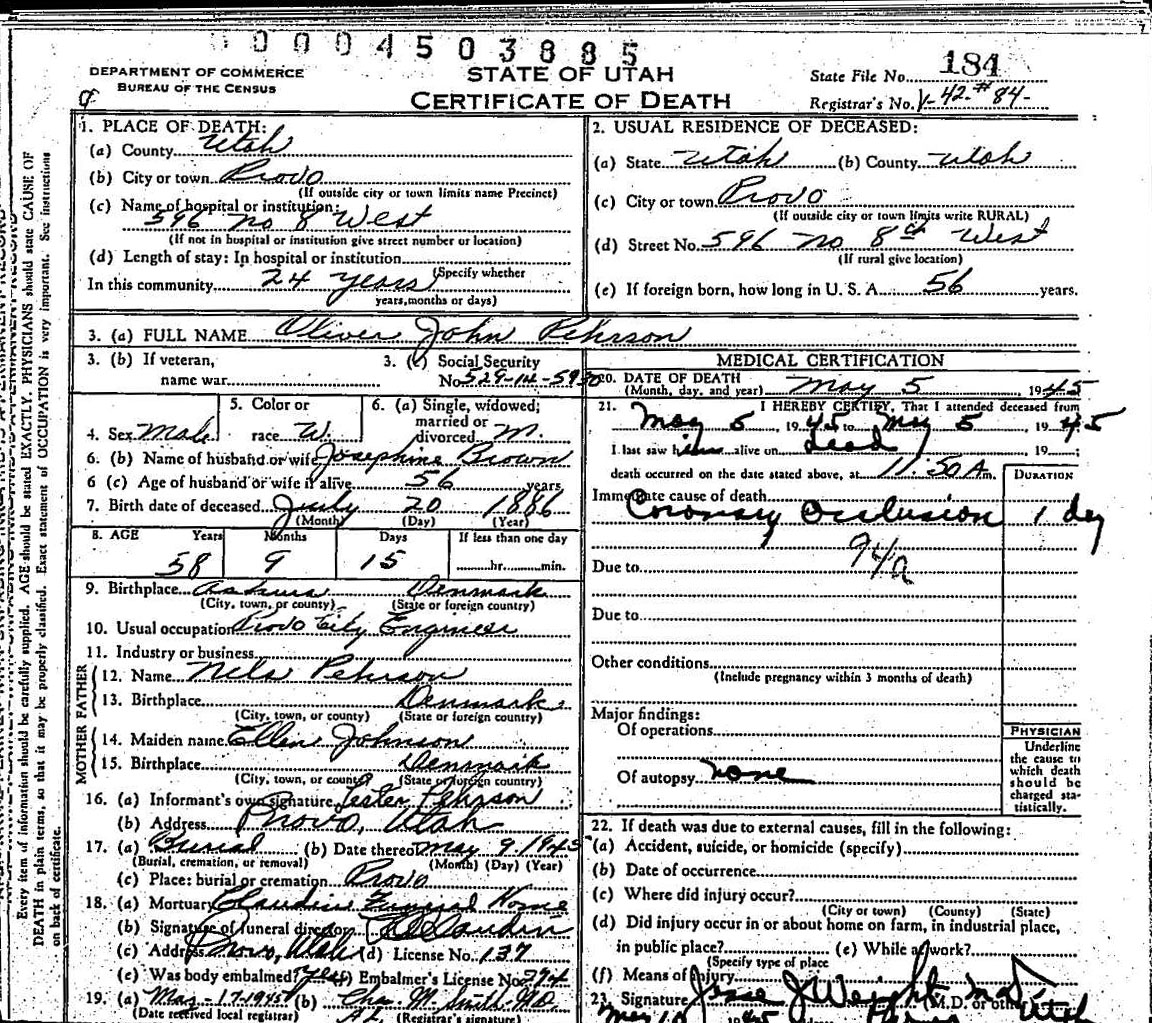 0004503885
DEPARTMENT OF COMMERCE
BUREAU OF THE CENSUS
STATE OF UTAH
CERTIFICATE OF DEATH
State File No. 184
Registrar's No. V-42-#84-
1. PLACE OF DEATH:
(a) County Utah
(b) City or town Provo
(If outside city or town limits name Precinct)
(c) Name of hospital or institution:
596 no 8 West
(If not in hospital or institution give street number or location)
(d) Length of stay: In hospital or institution
(Specify whether
In this community 24 years
years, months or days)
2. USUAL RESIDENCE OF DECEASED:
(a) State Utah (b) County Utah
(c) City or town Provo
(If outside city or town limits write RURAL)
(d) Street No. 596 no 8th West
(If rural give location)
(e) If foreign born, how long in U. S. A. 56 years.
3. (a) FULL NAME Oliver John Pehrson
3. (b) If veteran,
name war
3. (c) Social Security
No. 529-14-5930
4. Sex Male
5. Color or
race W.
6. (a) Single, widowed;
married or
divorced M.
6. (b) Name of husband or wife Josephine Brown
6 (c) Age of husband or wife if alive 56 years
7. Birth date of deceased July 20 1886
(Month) (Day) (Year)
8. AGE Years Months Days If less than one day
58 9 15 hr. min.
9. Birthplace Denmark
(City, town, or county) (State or foreign country)
10. Usual occupation Provo City Engineer
11. Industry or business
FATHER
12. Name Nels Pehrson
13. Birthplace Denmark
(City, town, or county) (State or foreign country)
MOTHER
14. Maiden name Ellen Johnson
15. Birthplace Denmark
(City, town, or county) (State or foreign country)
16. (a) Informant's own signature Lester Pehrson
(b) Address Provo, Utah
17. (a) Burial (b) Date thereof May 9 1945
(Burial, cremation, or removal) (Month) (Day) (Year)
(c) Place: burial or cremation Provo
18. (a) Mortuary Claudin Funeral Home
(b) Signature of funeral director Claudin
(c) Address Provo, Utah (d) License No. 137
(e) Was body embalmed? yes (f) Embalmer's License No. 294
19. (a) May-17-1945 (b) Chas. M. Smith M.D.
(Date received local registrar) (Registrar's signature)
MEDICAL CERTIFICATION
20. DATE OF DEATH
(Month, day, and year) May 5 1945
21. I HEREBY CERTIFY, That I attended deceased from
May 5, 1945 to May 5, 1945
I last saw him alive on dead, 19
death occurred on the date stated above, at 11:50 A.m.
DURATION
Immediate cause of death
Coronary Occlusion 1 day
94a
Due to
Due to
Other conditions
(Include pregnancy within 3 months of death)
Major findings:
Of operations
Of autopsy none
PHYSICIAN
Underline
the cause to
which death
should be
charged sta-
tistically.
22. If death was due to external causes, fill in the following:
(a) Accident, suicide, or homicide (specify)
(b) Date of occurrence
(c) Where did injury occur?
(City or town) (County) (State)
(d) Did injury occur in or about home on farm, in industrial place,
in public place? (e) While at work?
(Specify type of place
(f) Means of injury
23. Signature J Weight M.D. or other
May 10 1945 Provo Utah
Every item of information should be carefully supplied. AGE should be stated EXACTLY. PHYSICIANS should state CAUSE OF
DEATH in plain terms, so that it may be properly classified. Exact statement of OCCUPATION is very important. See instructions
on back of certificate.